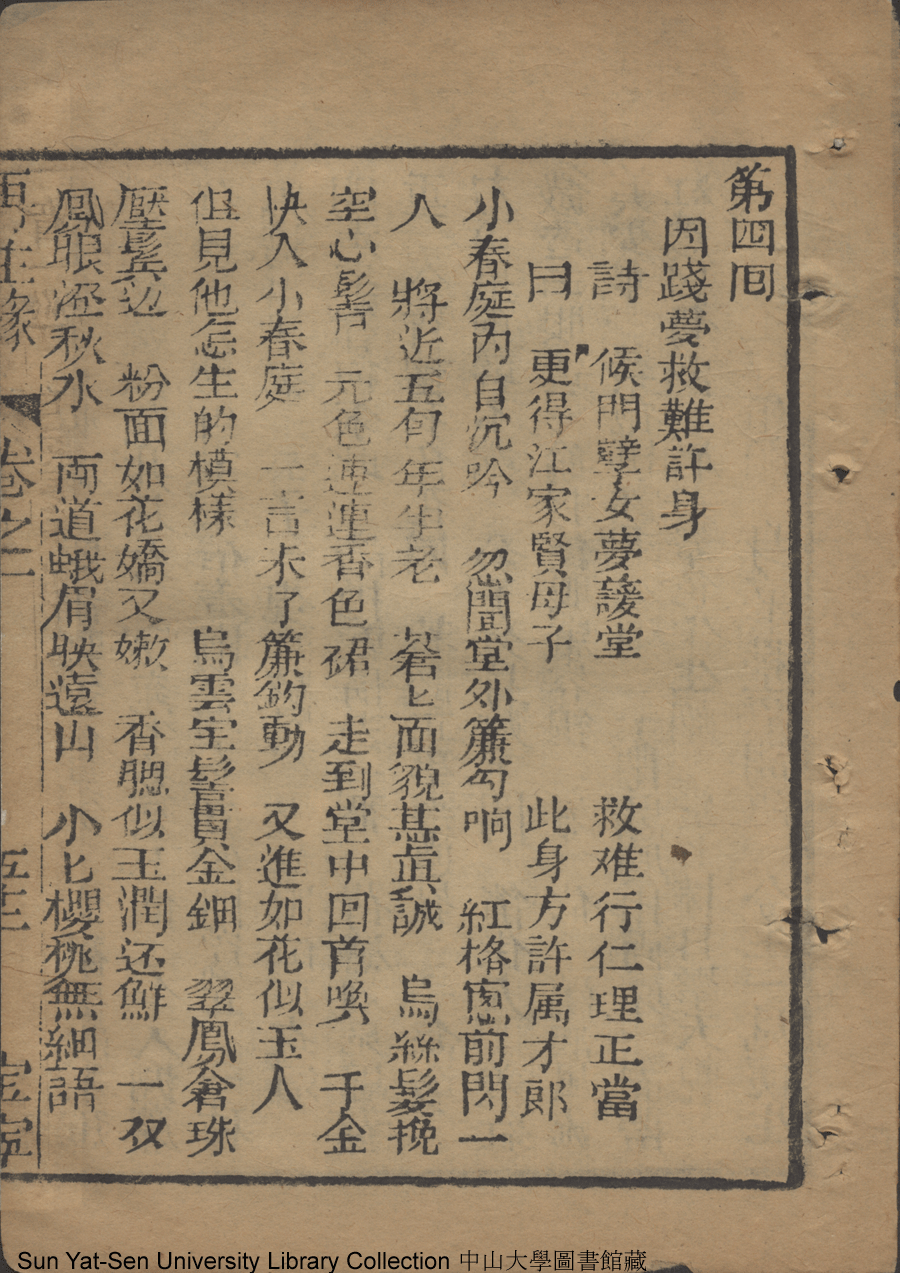 第四回
因踐夢救難許身
詩 候門孽女夢護堂 救难行仁理正當
曰 更得江家賢母子 此身方許属才郎
小春庭内自沉吟 忽聞堂外簾勾响 紅格窓前閃一
人 將近五旬年半老 蒼匕面貌甚眞誠 烏絲髮挽
空心髻 元色連香色裙 走到堂中回首喚 千金
快入小春庭 一言未了簾鈎動 又進如花似玉人
但見他怎生的模樣 烏雲宝髻貫金鈿 翠鳳倉珠
壓鬂边 粉面如花嬌又嫩 香腮似玉潤还鮮 一双
鳳眼澄秋水 両道蛾眉映遠山 小匕櫻桃無細語
再生緣 卷之二
Sun Yat-Sen University Library Collection 中山大學圖書館藏